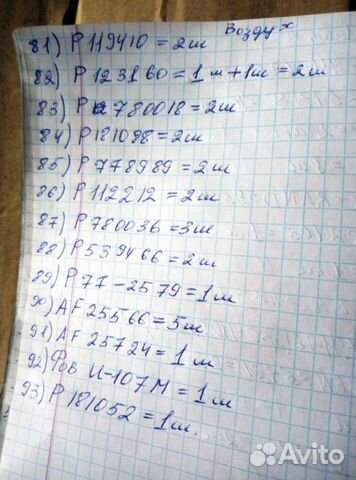 Воздух
81) P 119410 = 2ш
82) P 123160 = 1ш + 1ш = 2ш
83) P 780018 = 2ш
84) P 181088 = 2ш
85) P 778989 = 2ш
86) P 112212 = 2ш
87) P 780036 = 3ш
88) P 539466 = 2ш
89) P 77-2579 = 1ш
90) AF 25566 = 5ш
91) AF 25724 = 1ш
92) Фов И-107М = 1ш
93) P 181052 = 1ш.
Avito